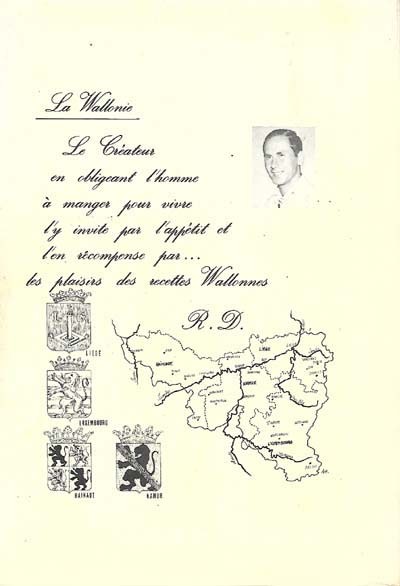 La Wallonie
Le Créateur
en obligeant l'homme
à manger pour vivre
l'y invite par l'appétit et
l'en récompense par...
les plaisirs des recettes Wallonnes
R. D.
LIEGE
LUXEMBOURG
HAINAUT
NAMUR